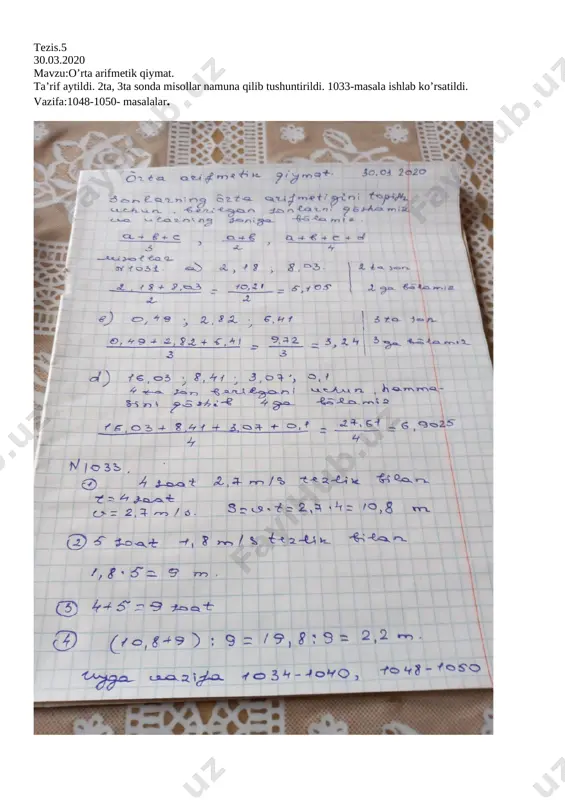 Tezis.5
30.03.2020
Mavzu:O’rta arifmetik qiymat.
Ta’rif aytildi. 2ta, 3ta sonda misollar namuna qilib tushuntirildi. 1033-masala ishlab ko’rsatildi.
Vazifa:1048-1050- masalalar.
Oʻrta arifmetik qiymat 30.03 2020
Sonlarning oʻrta arifmetigini topish
uchun, berilgan sonlarni qoʻshamiz
va ularning soniga boʻlamiz.
(a+b+c)/3 , (a+b)/2 , (a+b+c+d)/4
misollar
N1031 a) 2,18 ; 8,03. 2 ta son
(2,18+8,03)/2 = 10,21/2 = 5,105 2 ga boʻlamiz
b) 0,49 ; 2,82 ; 6,41 3 ta son
(0,49+2,82+6,41)/3 = 9,72/3 = 3,24 3 ga boʻlamiz
d) 16,03 ; 8,41 ; 3,07 ; 0,1
4 ta son berilgani uchun, hamma-
sini qoʻshib 4 ga boʻlamiz
(16,03+8,41+3,07+0,1)/4 = 27,61/4 = 6,9025
N1033.
① 4 soat 2,7 m/s tezlik bilan
t=4 soat
v=2,7 m/s. S=v·t=2,7·4=10,8 m
② 5 soat 1,8 m/s tezlik bilan
1,8·5=9 m.
③ 4+5=9 soat
④ (10,8+9):9=19,8:9=2,2 m.
Uyga vazifa 1034-1040, 1048-1050
FayllHub.uz